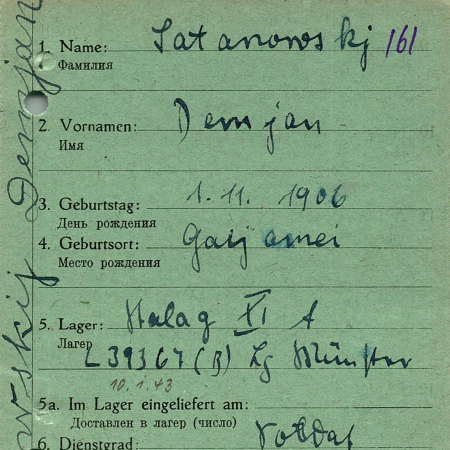 1. Name: Satanowskj 161
Фамилия
2. Vornamen: Demjan
Имя
3. Geburtstag: 1.11. 1906
День рождения
4. Geburtsort:
Место рождения
5. Lager: Stalag XI A
Лагерь
L 39367 (B) Lg Münster
10.1.43
5a. Im Lager eingeliefert am:
Доставлен в лагерь (число)
6. Dienstgrad: Soldat
wskij Demjan